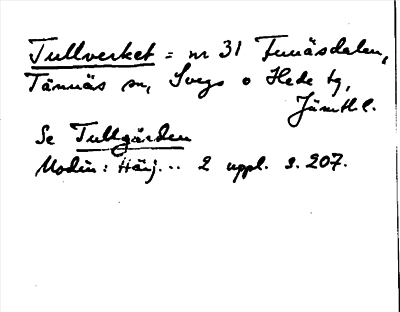 Tullverket = nr 31 Funäsdalen,
Tännäs sn, Svegs o Hede tg,
Jämtl l.
Se Tullgården
Modin: Härj... 2 uppl. s. 207.